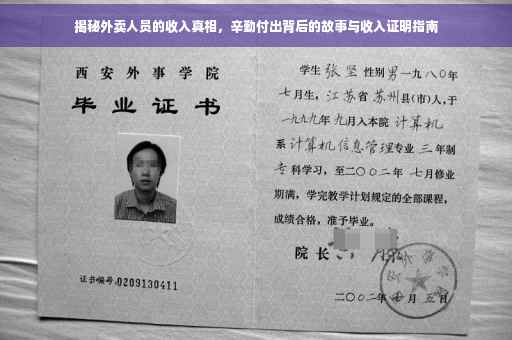 揭秘外卖人员的收入真相，辛勤付出背后的故事与收入证明指南
西安外事学院
毕业证书
证书编号:0209130411
学生 张坚 性别 男 一九八〇年
七月生，江苏省 苏州县(市)人,于
一九九九年 九月入本院 计算机
系 计算机信息管理专业 三 年制
专 科学习，至二〇〇二年 七月修业
期满，学完教学计划规定的全部课程，
成绩合格，准予毕业。
院长
二〇〇二年 七月 五日